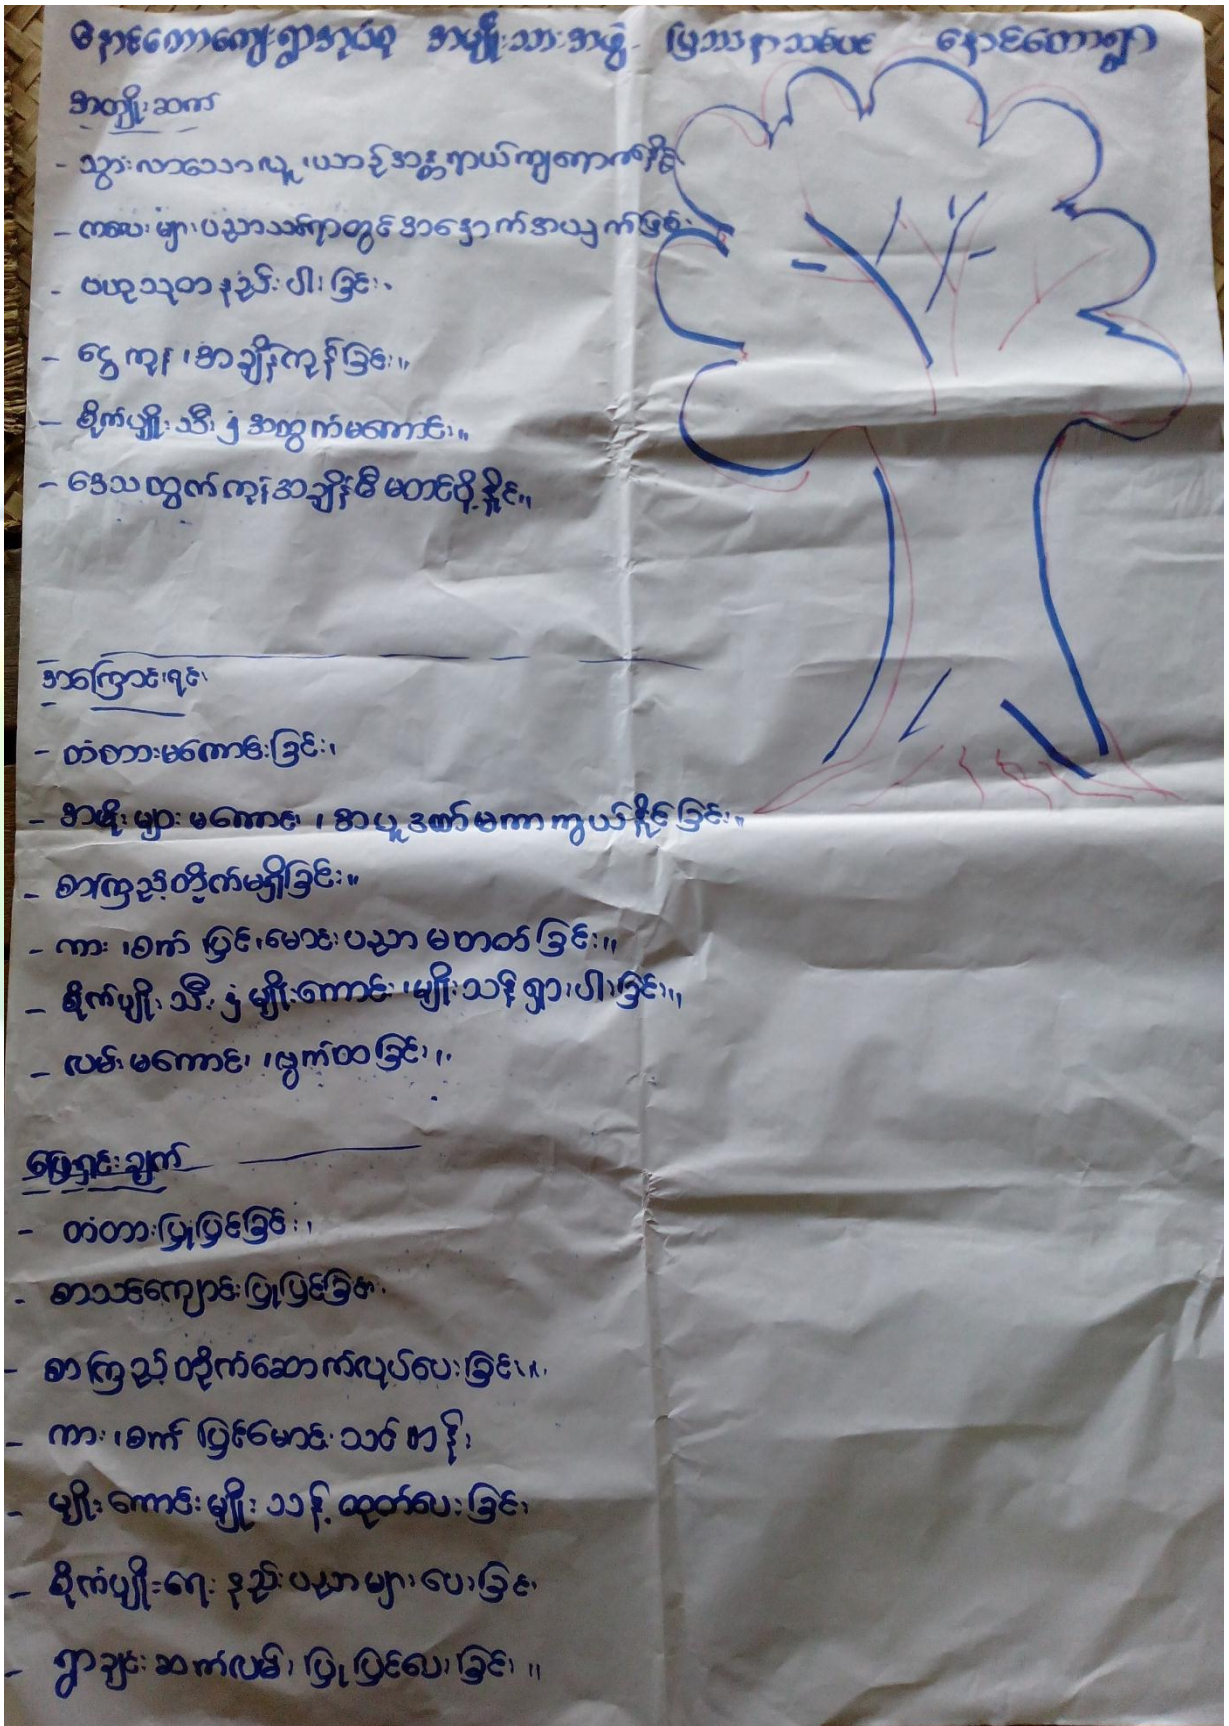 နောင်တောကျေးရွာအုပ်စု အမျိုးသားအဖွဲ့ ပြဿနာသစ်ပင် နောင်တောရွာ
အကျိုးဆက်
- သွားလာသောလူ၊ယာဉ်အန္တရာယ်ကျရောက်နိုင်
- ကလေးများပညာသင်ရာတွင်အနှောက်အယှက်ဖြစ်
- ဗဟုသုတနည်းပါးခြင်း၊
- ငွေကုန်၊အချိန်ကုန်ခြင်း။
- စိုက်ပျိုးသီးနှံအထွက်မကောင်း။
- ဒေသထွက်ကုန်အချိန်မီမတင်ပို့နိုင်။
အကြောင်းရင်း
- တံတားမကောင်းခြင်း၊
- အမိုးများမကောင်း၊အပူဒဏ်မကာကွယ်နိုင်ခြင်း။
- စာကြည့်တိုက်မရှိခြင်း။
- ကား၊စက်ပြင်၊မောင်းပညာမတတ်ခြင်း။
- စိုက်ပျိုးသီးနှံမျိုးကောင်း၊မျိုးသန့်ရှားပါးခြင်း။
- လမ်းမကောင်း၊ဗွက်ထခြင်း။
ဖြေရှင်းချက်
- တံတားပြုပြင်ခြင်း၊
- စာသင်ကျောင်းပြုပြင်ခြင်း
- စာကြည့်တိုက်ဆောက်လုပ်ပေးခြင်း။
- ကား၊စက်ပြင်မောင်းသင်တန်း
- မျိုးကောင်းမျိုးသန့်ထုတ်ပေးခြင်း
- စိုက်ပျိုးရေးနည်းပညာများပေးခြင်း
- ရွာချင်းဆက်လမ်းပြုပြင်ပေးခြင်း။